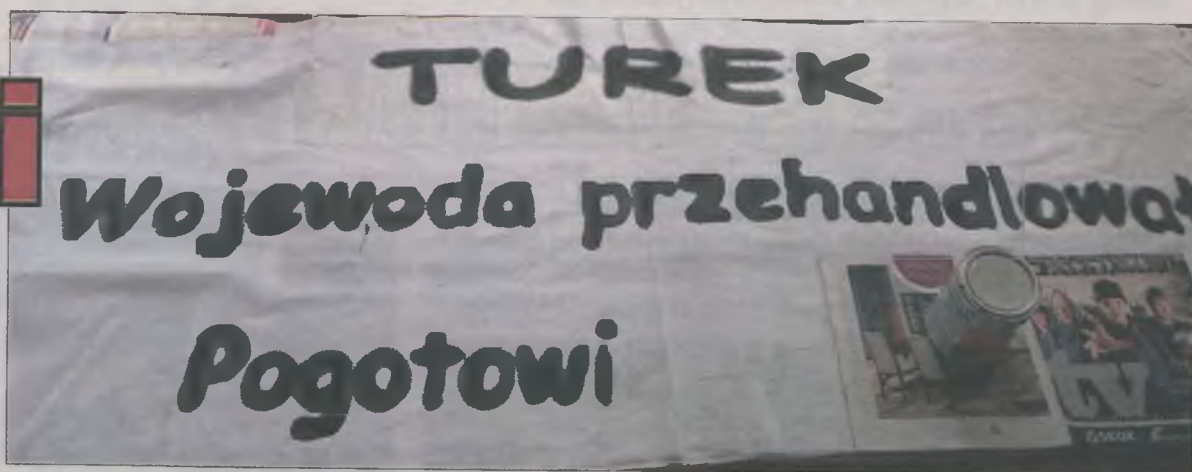 i
TUREK
Wojewoda przehandlował
Pogotowi
tv